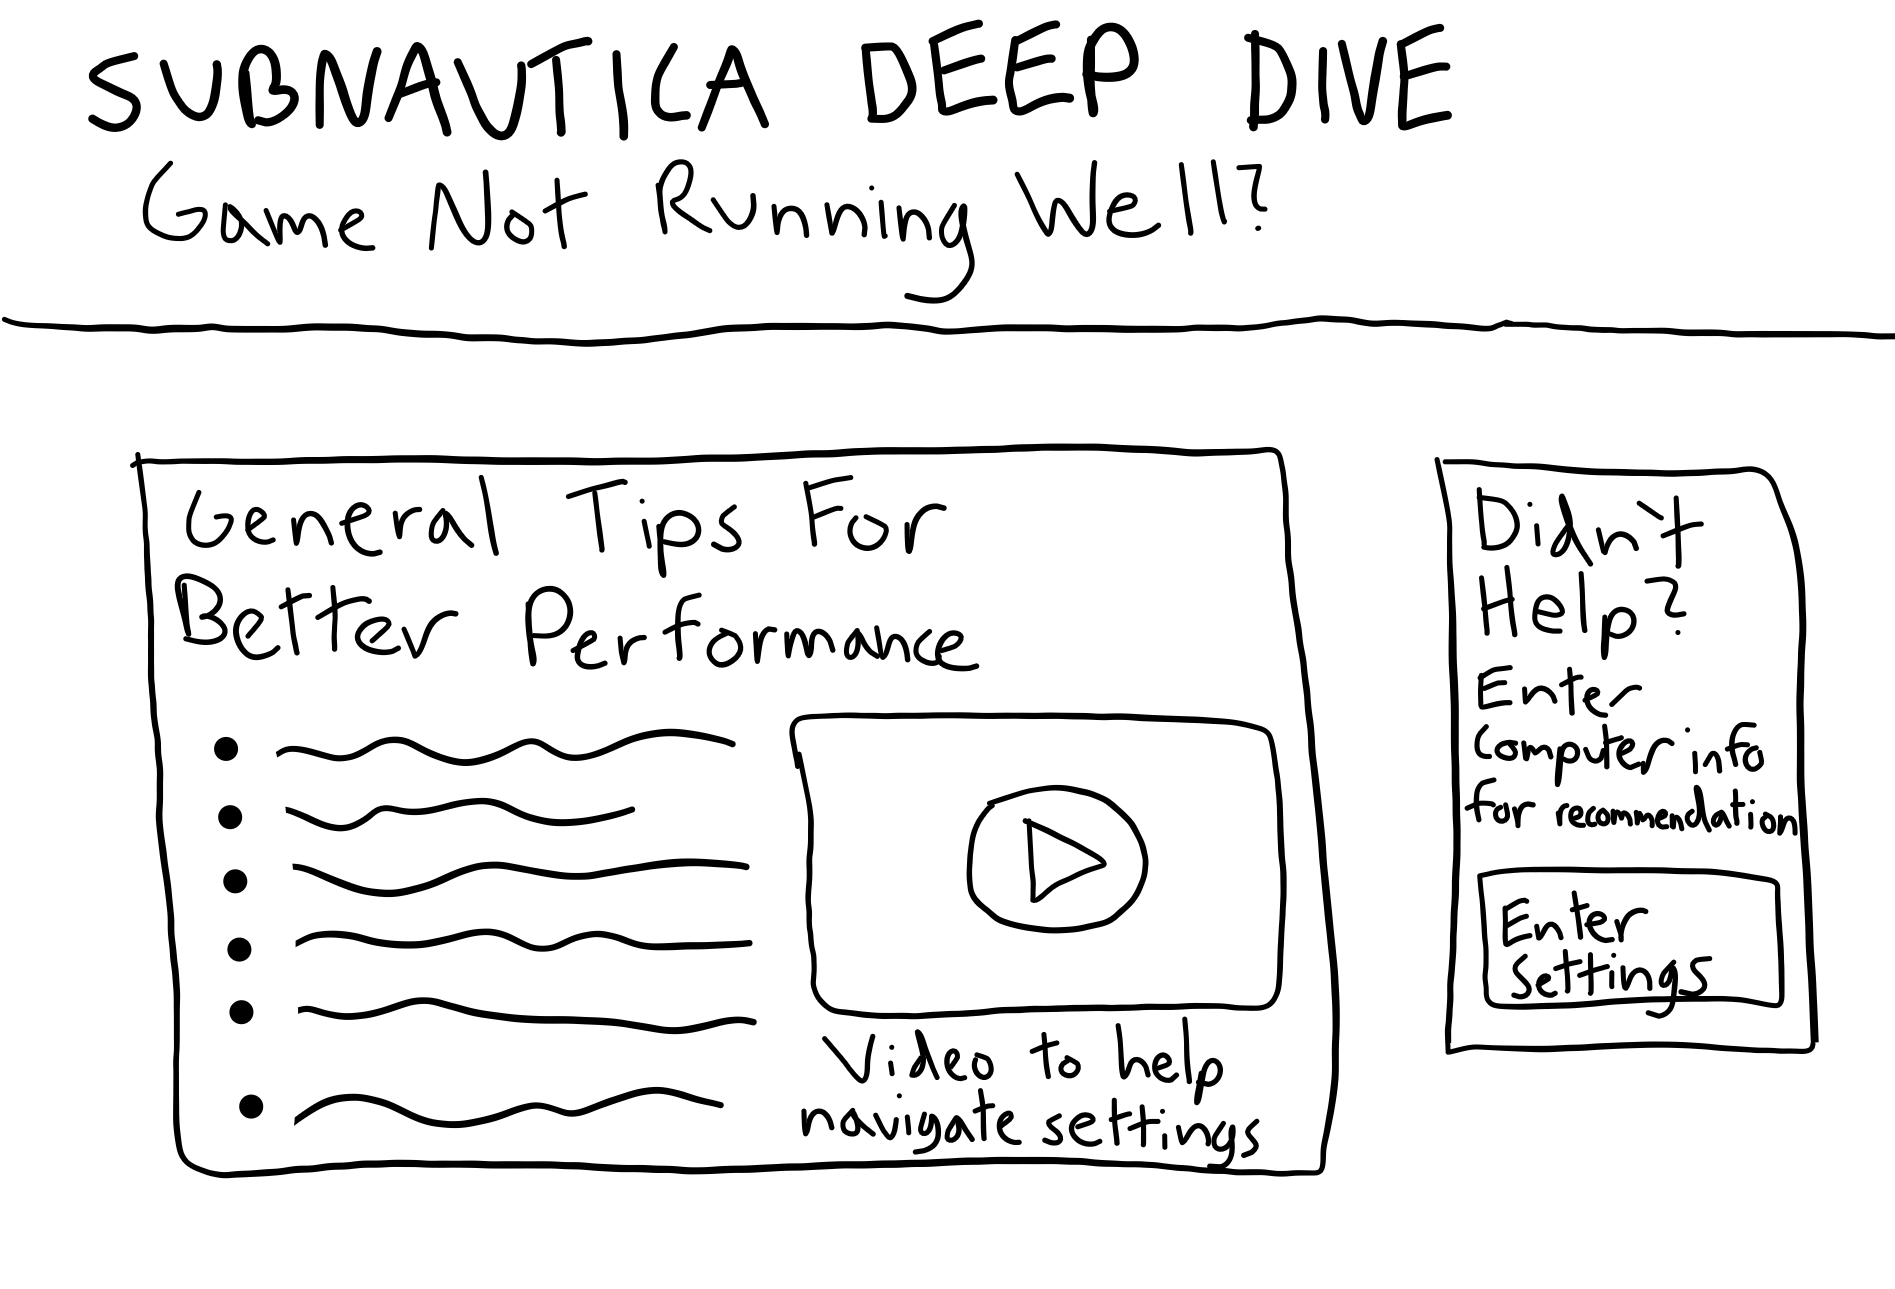 SUBNAUTICA DEEP DIVE
Game Not Running Well?
General Tips For
Better Performance
Video to help
navigate settings
Didn't
Help?
Enter
Computer info
for recommendation
Enter
settings